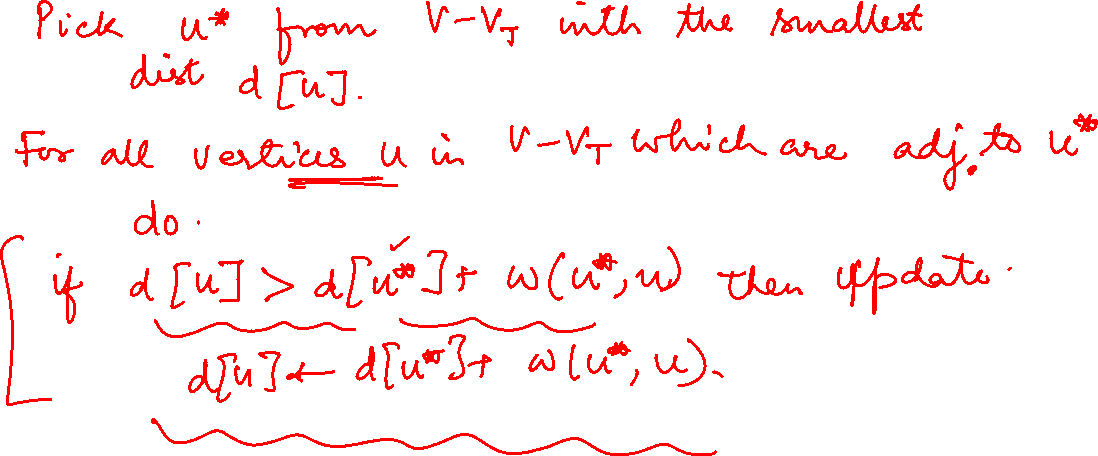 Pick u* from V-V_T with the smallest
dist d[u].
For all vertices u in V-V_T which are adj. to u*
do.
if d[u] > d[u*] + w(u*, u) then update.
d[u] ← d[u*] + w(u*, u).